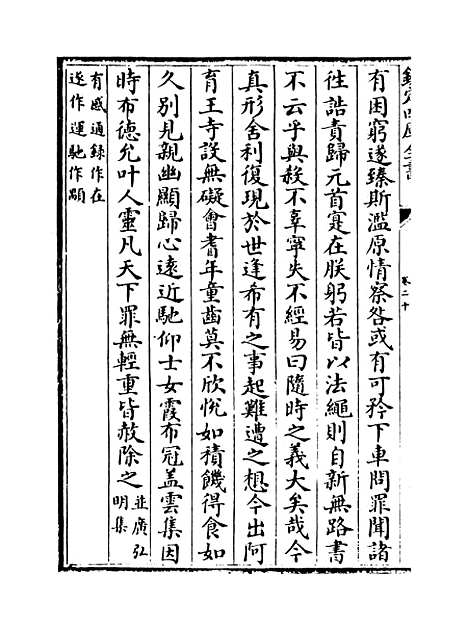 欽定四庫全書
卷二十
有困窮遂臻斯濫原情察咎或有可矜下車問罪聞諸
往誥責歸元首寔在朕躬若皆以法繩則自新無路書
不云乎與殺不辜寧失不經易曰隨時之義大矣哉今
真形舍利復現於世逢希有之事起難遭之想今出阿
育王寺設無礙會耆年童齒莫不欣悅如積饑得食如
久別見親幽顯歸心遠近馳仰士女霞布冠盖雲集因
時布德允叶人靈凡天下罪無輕重皆赦除之並廣弘
明集
有感通録作在
遂作運馳作顒